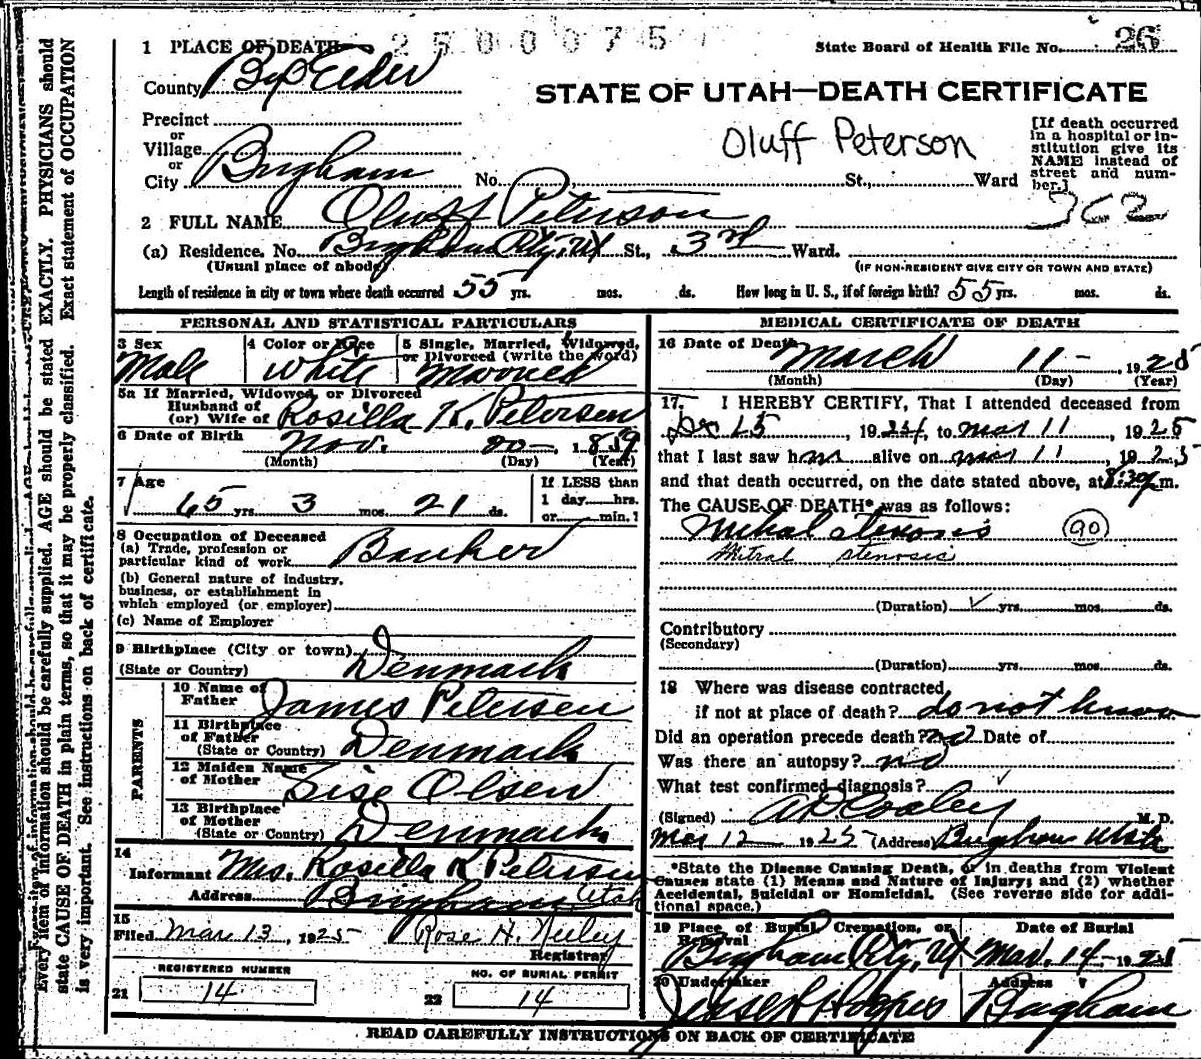 1 PLACE OF DEATH
2500075
State Board of Health File No. 26
County Box Elder
STATE OF UTAH—DEATH CERTIFICATE
Precinct
or
Village
or
City Brigham No. St., Ward
Oluff Peterson
[If death occurred in a hospital or institution give its NAME instead of street and number.]
362
2 FULL NAME Oluff Peterson
(a) Residence. No. Brigham City, Ut St., 3rd Ward.
(Usual place of abode)
(IF NON-RESIDENT GIVE CITY OR TOWN AND STATE)
Length of residence in city or town where death occurred 55 yrs. mos. ds. How long in U. S., if of foreign birth? 55 yrs. mos. ds.
PERSONAL AND STATISTICAL PARTICULARS
3 Sex
Male
4 Color or Race
White
5 Single, Married, Widowed,
or Divorced (write the word)
Married
5a If Married, Widowed, or Divorced
Husband of
(or) Wife of Rosilla K. Petersen
6 Date of Birth Nov. 20 1859
(Month) (Day) (Year)
7 Age
65 yrs. 3 mos. 21 ds.
If LESS than
1 day hrs.
or min.?
8 Occupation of Deceased
(a) Trade, profession or
particular kind of work Banker
(b) General nature of industry,
business, or establishment in
which employed (or employer)
(c) Name of Employer
9 Birthplace (City or town)
(State or Country) Denmark
PARENTS
10 Name of
Father James Petersen
11 Birthplace
of Father
(State or Country) Denmark
12 Maiden Name
of Mother Sise Olsen
13 Birthplace
of Mother
(State or Country) Denmark
14
Informant Mrs. Rosilla K Petersen
Address Brigham Utah
15
Filed Mar 13, 1925 Rose H. Neeley
Registrar
REGISTERED NUMBER
21 14
NO. OF BURIAL PERMIT
22 14
MEDICAL CERTIFICATE OF DEATH
16 Date of Death March 11 - , 1925
(Month) (Day) (Year)
17. I HEREBY CERTIFY, That I attended deceased from
Dec 15, 1924, to Mar 11, 1925
that I last saw him alive on Mar 11, 1925
and that death occurred, on the date stated above, at 8:30 p.m.
The CAUSE OF DEATH* was as follows:
Mitral stenosis 90
Mitral stenosis
(Duration) yrs. mos. ds.
Contributory
(Secondary)
(Duration) yrs. mos. ds.
18 Where was disease contracted
if not at place of death? do not know
Did an operation precede death? no Date of
Was there an autopsy? no
What test confirmed diagnosis?
(Signed) A D Cooley M. D.
Mar 12 1925 (Address) Brigham Utah
*State the Disease Causing Death, or in deaths from Violent
Causes state (1) Means and Nature of Injury; and (2) whether
Accidental, Suicidal or Homicidal. (See reverse side for addi-
tional space.)
19 Place of Burial, Cremation, or
Removal
Brigham City, Ut
Date of Burial
Mar. 14 - 1925
20 Undertaker
Address
Brigham
READ CAREFULLY INSTRUCTIONS ON BACK OF CERTIFICATE
Every item of information should be carefully supplied. AGE should be stated EXACTLY. PHYSICIANS should
state CAUSE OF DEATH in plain terms, so that it may be properly classified. Exact statement of OCCUPATION
is very important. See instructions on back of certificate.